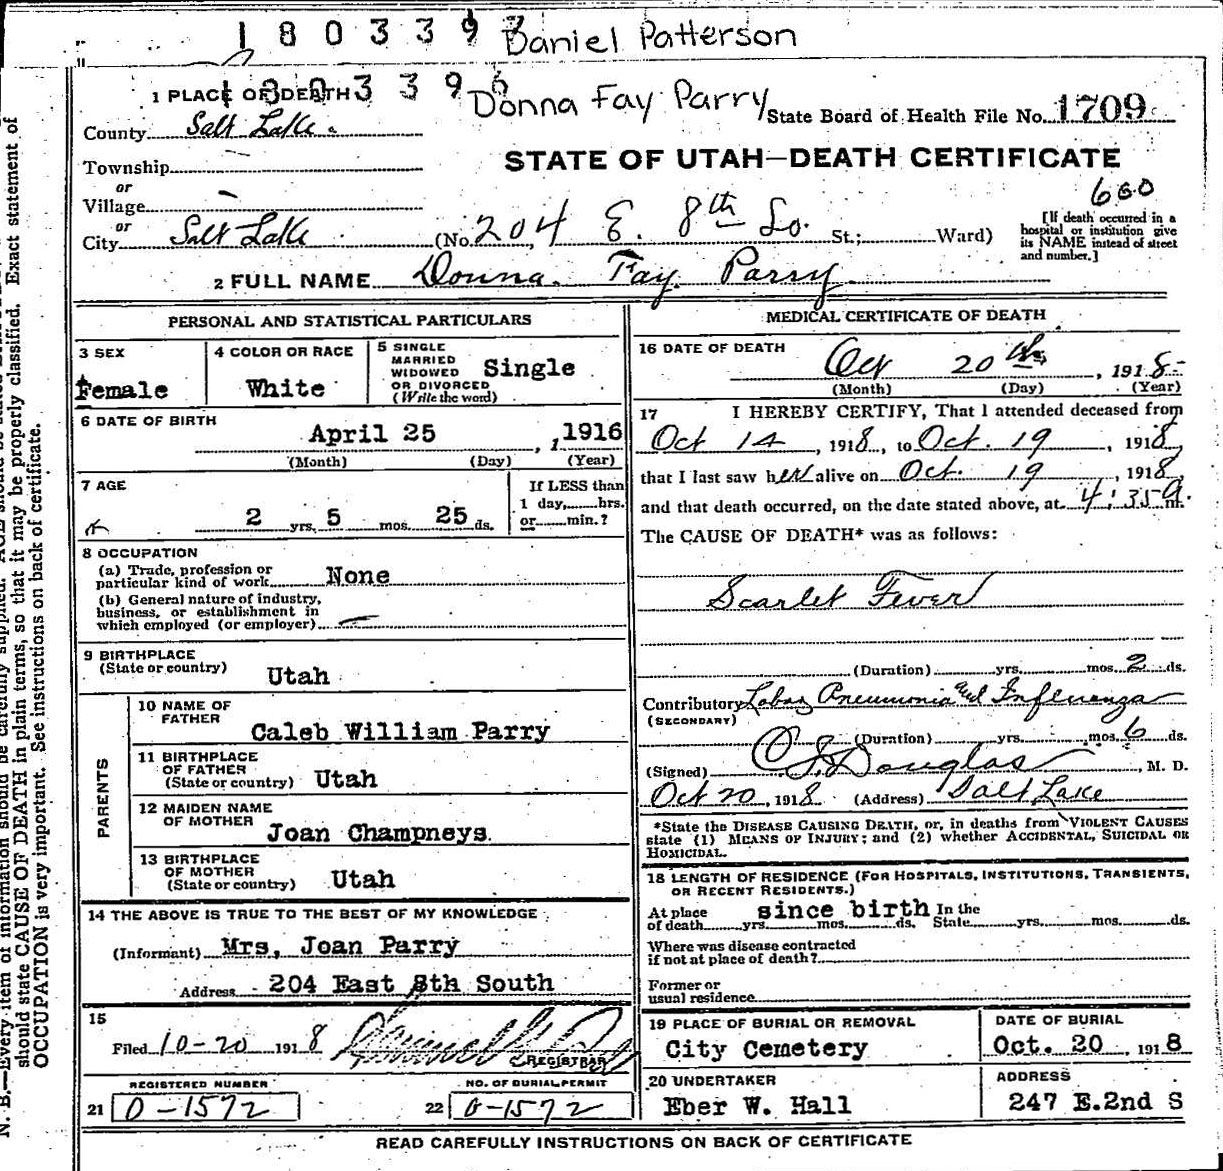 1 8 0 3 3 9 Daniel Patterson
1 8 0 3 3 9 6 Donna Fay Parry
1 PLACE OF DEATH
State Board of Health File No. 1709
County Salt Lake
STATE OF UTAH—DEATH CERTIFICATE
Township
or
Village
or
City Salt Lake (No. 204 E. 8th So. St.; Ward)
600
[If death occurred in a
hospital or institution give
its NAME instead of street
and number.]
2 FULL NAME Donna Fay Parry
PERSONAL AND STATISTICAL PARTICULARS
3 SEX
Female
4 COLOR OR RACE
White
5 SINGLE
MARRIED
WIDOWED
OR DIVORCED
(Write the word)
Single
6 DATE OF BIRTH
April 25, 1916
(Month) (Day) (Year)
7 AGE
2 yrs. 5 mos. 25 ds.
If LESS than
1 day, hrs.
or min.?
8 OCCUPATION
(a) Trade, profession or
particular kind of work None
(b) General nature of industry,
business, or establishment in
which employed (or employer) —
9 BIRTHPLACE
(State or country) Utah
PARENTS
10 NAME OF
FATHER
Caleb William Parry
11 BIRTHPLACE
OF FATHER
(State or country) Utah
12 MAIDEN NAME
OF MOTHER
Joan Champneys
13 BIRTHPLACE
OF MOTHER
(State or country) Utah
14 THE ABOVE IS TRUE TO THE BEST OF MY KNOWLEDGE
(Informant) Mrs. Joan Parry
Address 204 East 8th South
15
Filed 10-20 1918
REGISTRAR
REGISTERED NUMBER
21 0-1572
NO. OF BURIAL PERMIT
22 0-1572
MEDICAL CERTIFICATE OF DEATH
16 DATE OF DEATH
Oct 20th, 1918
(Month) (Day) (Year)
17 I HEREBY CERTIFY, That I attended deceased from
Oct 14, 1918, to Oct. 19, 1918,
that I last saw her alive on Oct. 19, 1918,
and that death occurred, on the date stated above, at 4:35 a. m.
The CAUSE OF DEATH* was as follows:
Scarlet Fever
(Duration) yrs. mos. 2 ds.
Contributory Lobar Pneumonia and Influenza
(SECONDARY)
(Duration) yrs. mos. 6 ds.
(Signed) Douglas, M. D.
Oct 20, 1918 (Address) Salt Lake
*State the DISEASE CAUSING DEATH, or, in deaths from VIOLENT CAUSES
state (1) MEANS OF INJURY; and (2) whether ACCIDENTAL, SUICIDAL OR
HOMICIDAL.
18 LENGTH OF RESIDENCE (FOR HOSPITALS, INSTITUTIONS, TRANSIENTS,
OR RECENT RESIDENTS.)
At place since birth In the
of death yrs. mos. ds. State yrs. mos. ds.
Where was disease contracted
if not at place of death?
Former or
usual residence
19 PLACE OF BURIAL OR REMOVAL
City Cemetery
DATE OF BURIAL
Oct. 20, 1918
20 UNDERTAKER
Eber W. Hall
ADDRESS
247 E.2nd S
READ CAREFULLY INSTRUCTIONS ON BACK OF CERTIFICATE
N. B.—Every item of information should be carefully supplied. AGE should be stated
should state CAUSE OF DEATH in plain terms, so that it may be properly classified. Exact statement of
OCCUPATION is very important. See instructions on back of certificate.